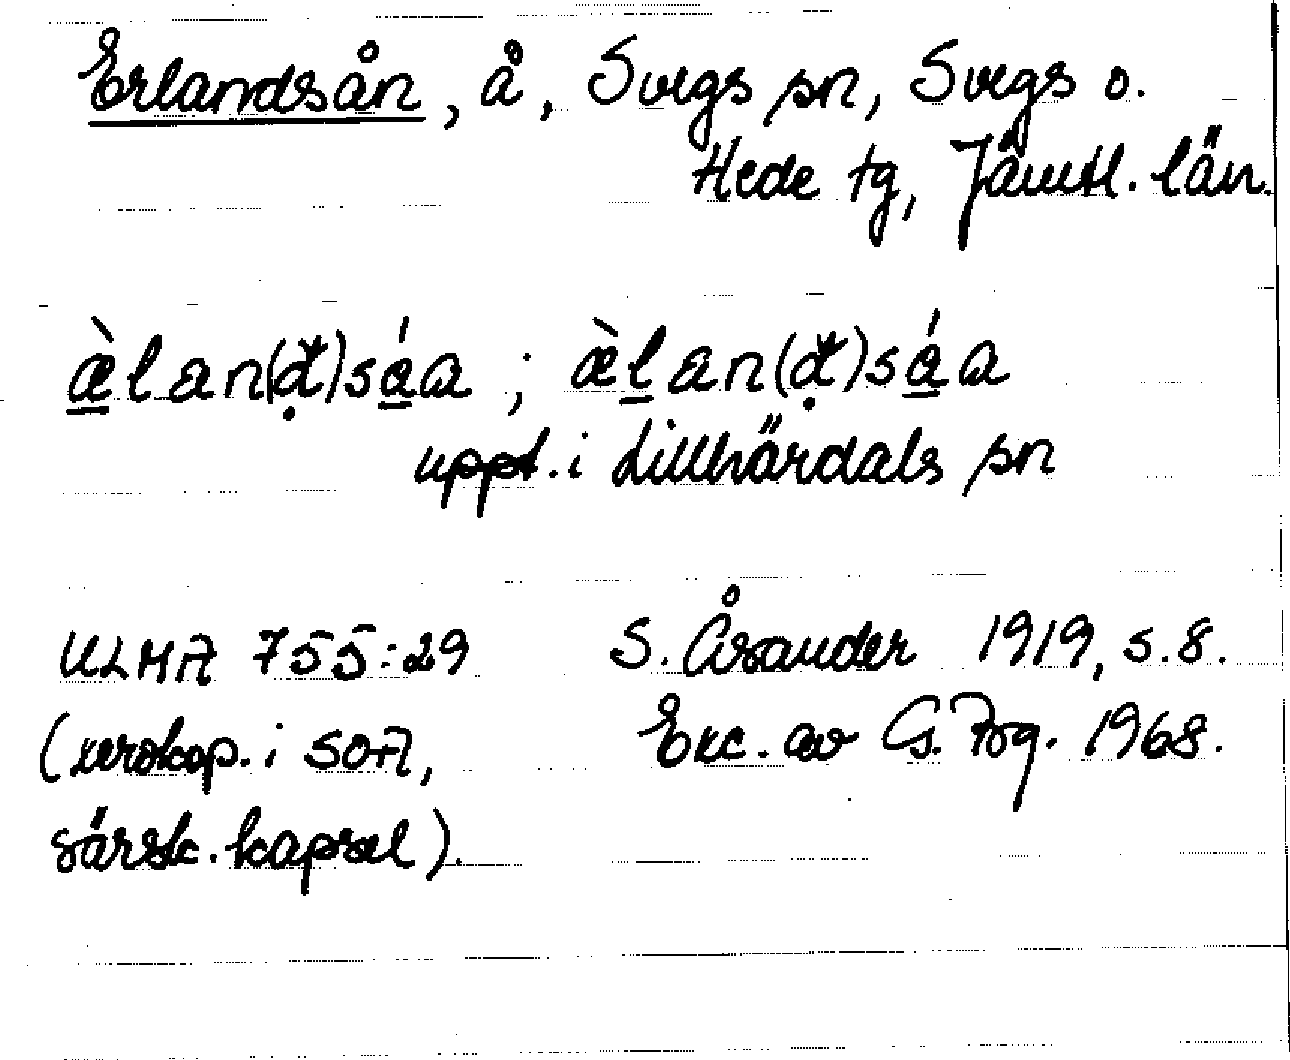 Erlandsån, å, Svegs sn, Svegs o.
Hede tg, Jämtl. län.
æ̀lan(đ̣)sáa ; æ̀lan(đ̣)sáa
uppt. i Lillhärdals sn
ULMA 755:29 S. Årsander 1919, s. 8.
(xerokop. i SOA, Exc. av G. 1968.
särsk. kapsel).